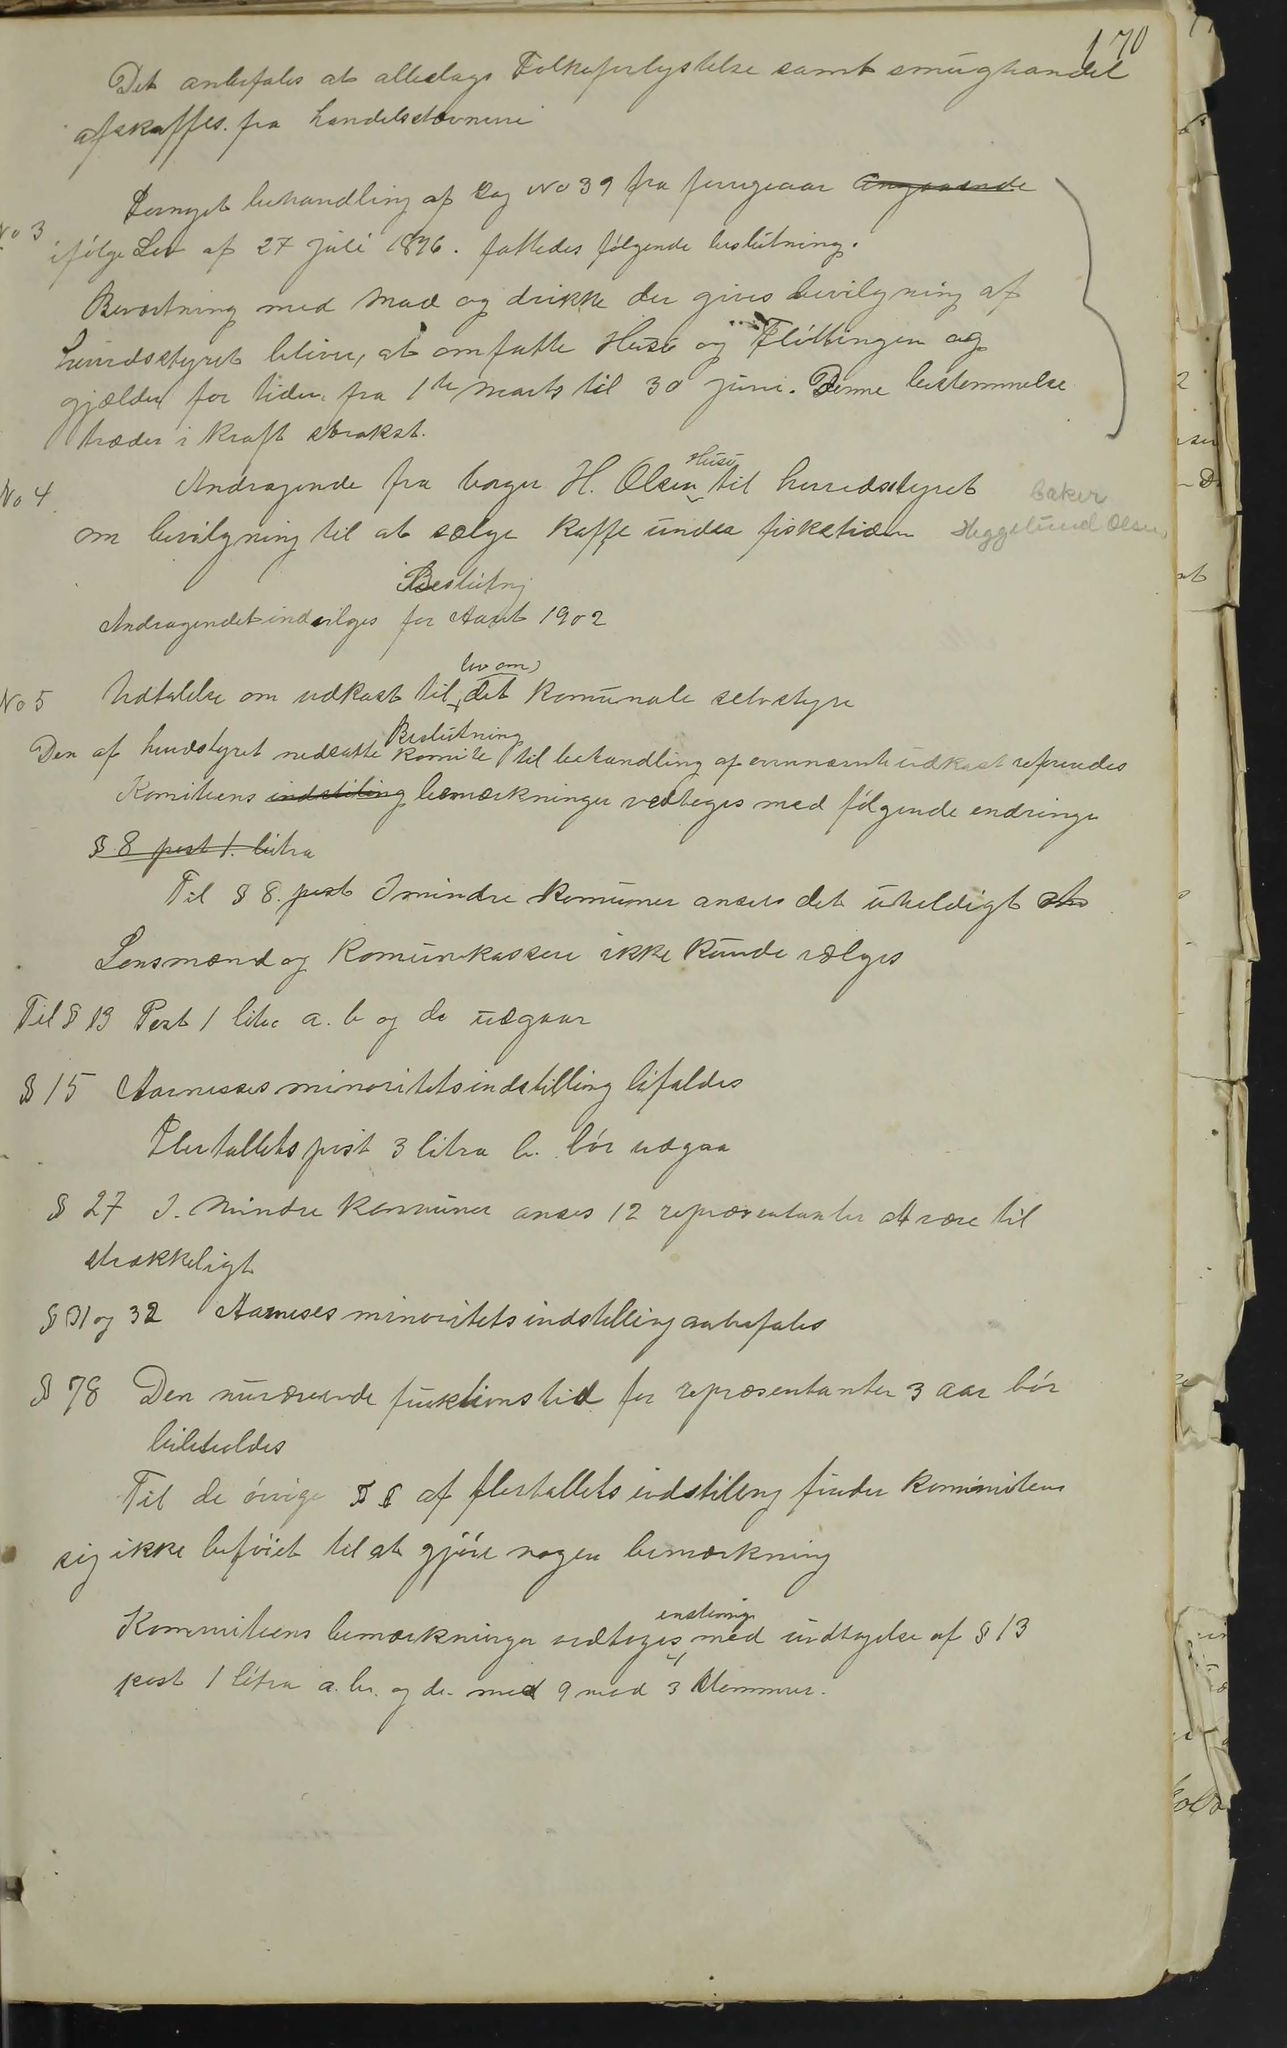 170
Det anbefales at alleslags Folkeforlystelse samt smughandel
afskaffes. fra handelsstævnene
Fornyet behandling af Sag No 39 fra forrigeaar Angaaende
No 3
ifølge Lov af 27 Juli 1896. fattedes følgende beslutning.
Beværtning med Mad og drikke der gives bevilgning af
herredsstyret bliver, at omfatte Husø og Fløttingen og
gjælder for tiden fra 1te Marts til 30 juni. Denne bestemmelse
træder i kraft strakst.
Husø
No 4 Andragende fra bager H. Olsen til herredsstyret baker
om bevilgning til at sælge kaffe under fisketiden Heggelund Olsen
Beslutng
Andragendet indvilges for Aaret 1902
lov om
No 5 Udtalelse om udkast til det komunale selvstyre
Beslutning
Den af herredstyret nedsatte komite til behandling af ovennævnte udkast refereredes
Komiteens indstiling bemærkninger vedtoges med følgende endringer
§ 8 post 1. litra
Til § 8. post I mindre komuner ansees det uheldigt at
Lensmænd og komunekassere ikke kunde vælges
Til § 13 Post 1 litra a. b og d. udgaar
§ 15 Aarnesses minoritetsindstilling bifaldes
Flertallets post 3 litra b. bør udgaa
§ 27 I. Mindre kommuner anses 12 repræsentanter at være til
strækkeligt
§ 31 og 32 Aarneses minoritetsindstilling anbefales
§ 78 Den nuværende funktionstid for repræsentanter 3 aar bør
bibeholdes
Til de øvrige § § af flertallets indstiling finder kommiteen
sig ikke beføiet til at gjøre nogen bemærkning
enstemmig
Kommiteens bemærkninger vedtoges med undtagelse af § 13
post 1 litra a. b. og d. med 9 mod 3 Stemmer.